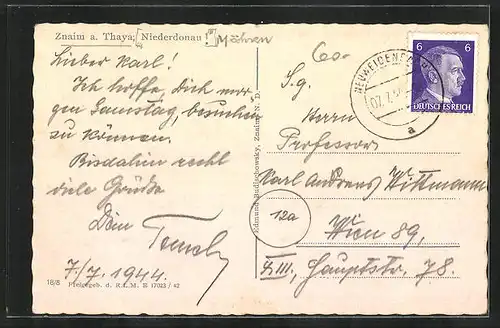 Znaim a. Thaya, (Niederdonau) Mähren
Lieber Karl!
Ich hoffe, Dich mor-
gen Samstag, besuchen
zu können.
Bis dahin recht
viele Grüße
Dein
7./7. 1944.
18/8 Freigegeb. d. R.L.M. B 17023 / 42
Edmund Budischowsky, Znaim N. D.
60.-
6 6
DEUTSCHES REICH
07.7.
a
S.g.
Herrn
Professor
Karl Andreas Wittmann
12a
Wien 89,
Hauptstr. 78.